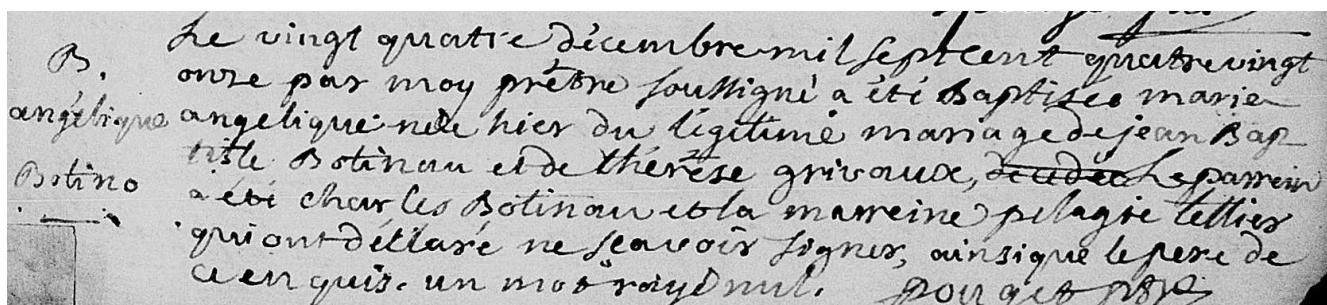 B.
angélique
Botino
Le vingt quatre décembre mil sept cent quatre vingt
onze par moy prêtre soussigné a été Baptisée marie
angelique née hier du légitime mariage de jean Bap
tiste Botinau et de thérèse grivaux, Le parrein
a été charles Botinau et la marreine pelagie tellier
qui ont déclaré ne sçavoir signer, ainsi que le pere de
ce enquis. un mot rayé nul. pouget ptre